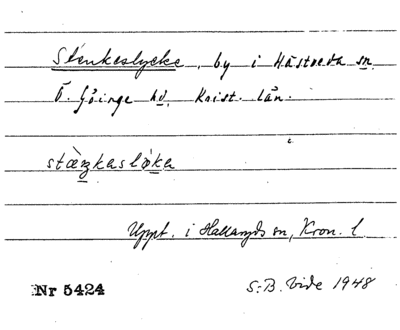 Stenkeslycke, by i Hästveda sn.
Ö. Göinge hd, Krist. län.
stæ̀ŋkasløka
Uppt. i Hallaryds sn, Kron. l.
Nr 5424
S:B. Vide 1948